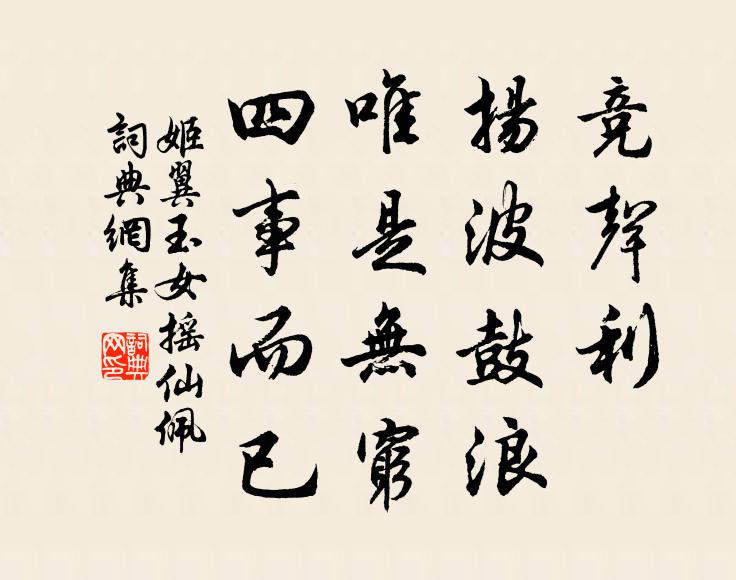 竞聲利
揚波鼓浪
唯是無窮
四事而已
姬翼玉女摇仙佩
詞典網集
詞典網印